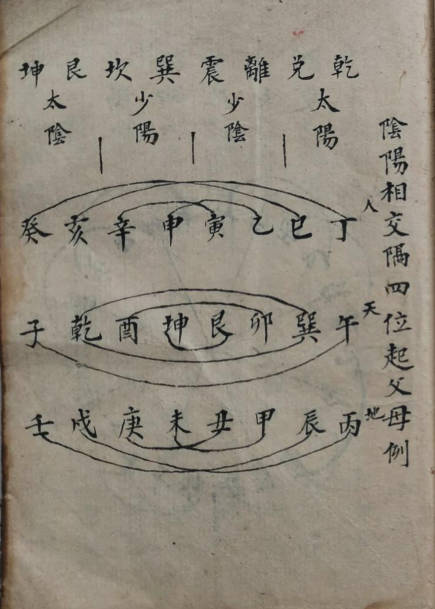 陰陽相交隔四位起父母例
乾兌離震巽坎艮坤
太陽 少陰 少陽 太陰
人
丁巳乙寅申辛亥癸
天
午巽卯艮坤酉乾子
地
丙辰甲丑未庚戌壬